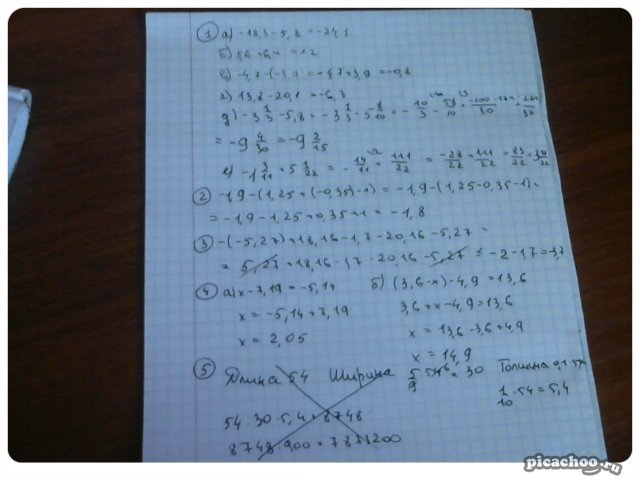 1 а) -18,3-5,8=-24,1
б) 5,6+6,4=12
в) -4,7-(-3,9)=-4,7+3,9=-0,8
г) 13,8-20,1=-6,3
д) -3 1/3-5,8=-3 1/3-5 8/10=-10/3-58/10=
=-9 4/30=-9 2/15
е) -1 3/11+5 1/22=-14/11+111/22=-28/22+111/22=83/22=
2 -1,9-(1,25+(-0,35)-1)=-1,9-(1,25-0,35-1)=
=-1,9-1,25+0,35+1=-1,8
3 -(-5,27)+18,16-1,7-20,16-5,27=
=5,27+18,16-1,7-20,16-5,27=-2-1,7=
4 а) x-7,19=-5,14 б) (3,6-x)-4,9=13,6
x=-5,14+7,19 3,6+x-4,9=13,6
x=2,05 x=13,6-3,6+4,9
x=14,9
5 Длина 54 Ширина 5/9·54=30 Толщина
1/10·54=5,4
54·30·5,4=8748
8748·900=
picachoo.ru